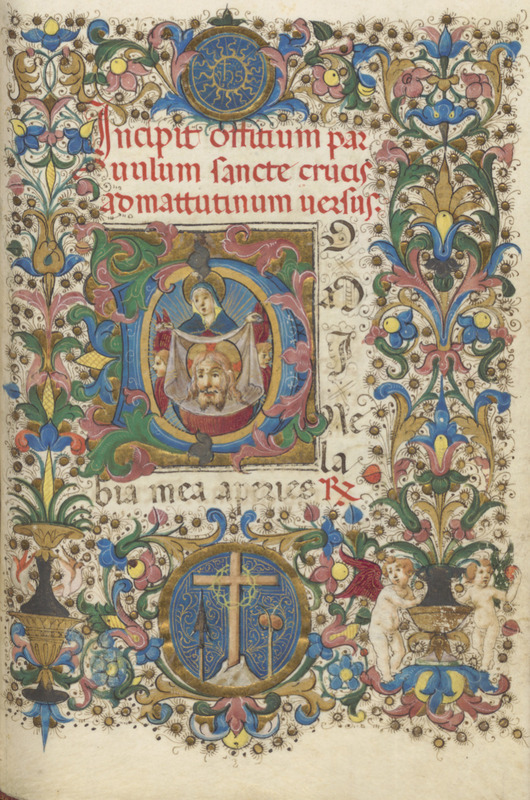 yhs
Incipit offitium par
uulum sancte crucis
ad mattutinum uersus.
D O
M
I
Ne
la
bia mea aperies ℞